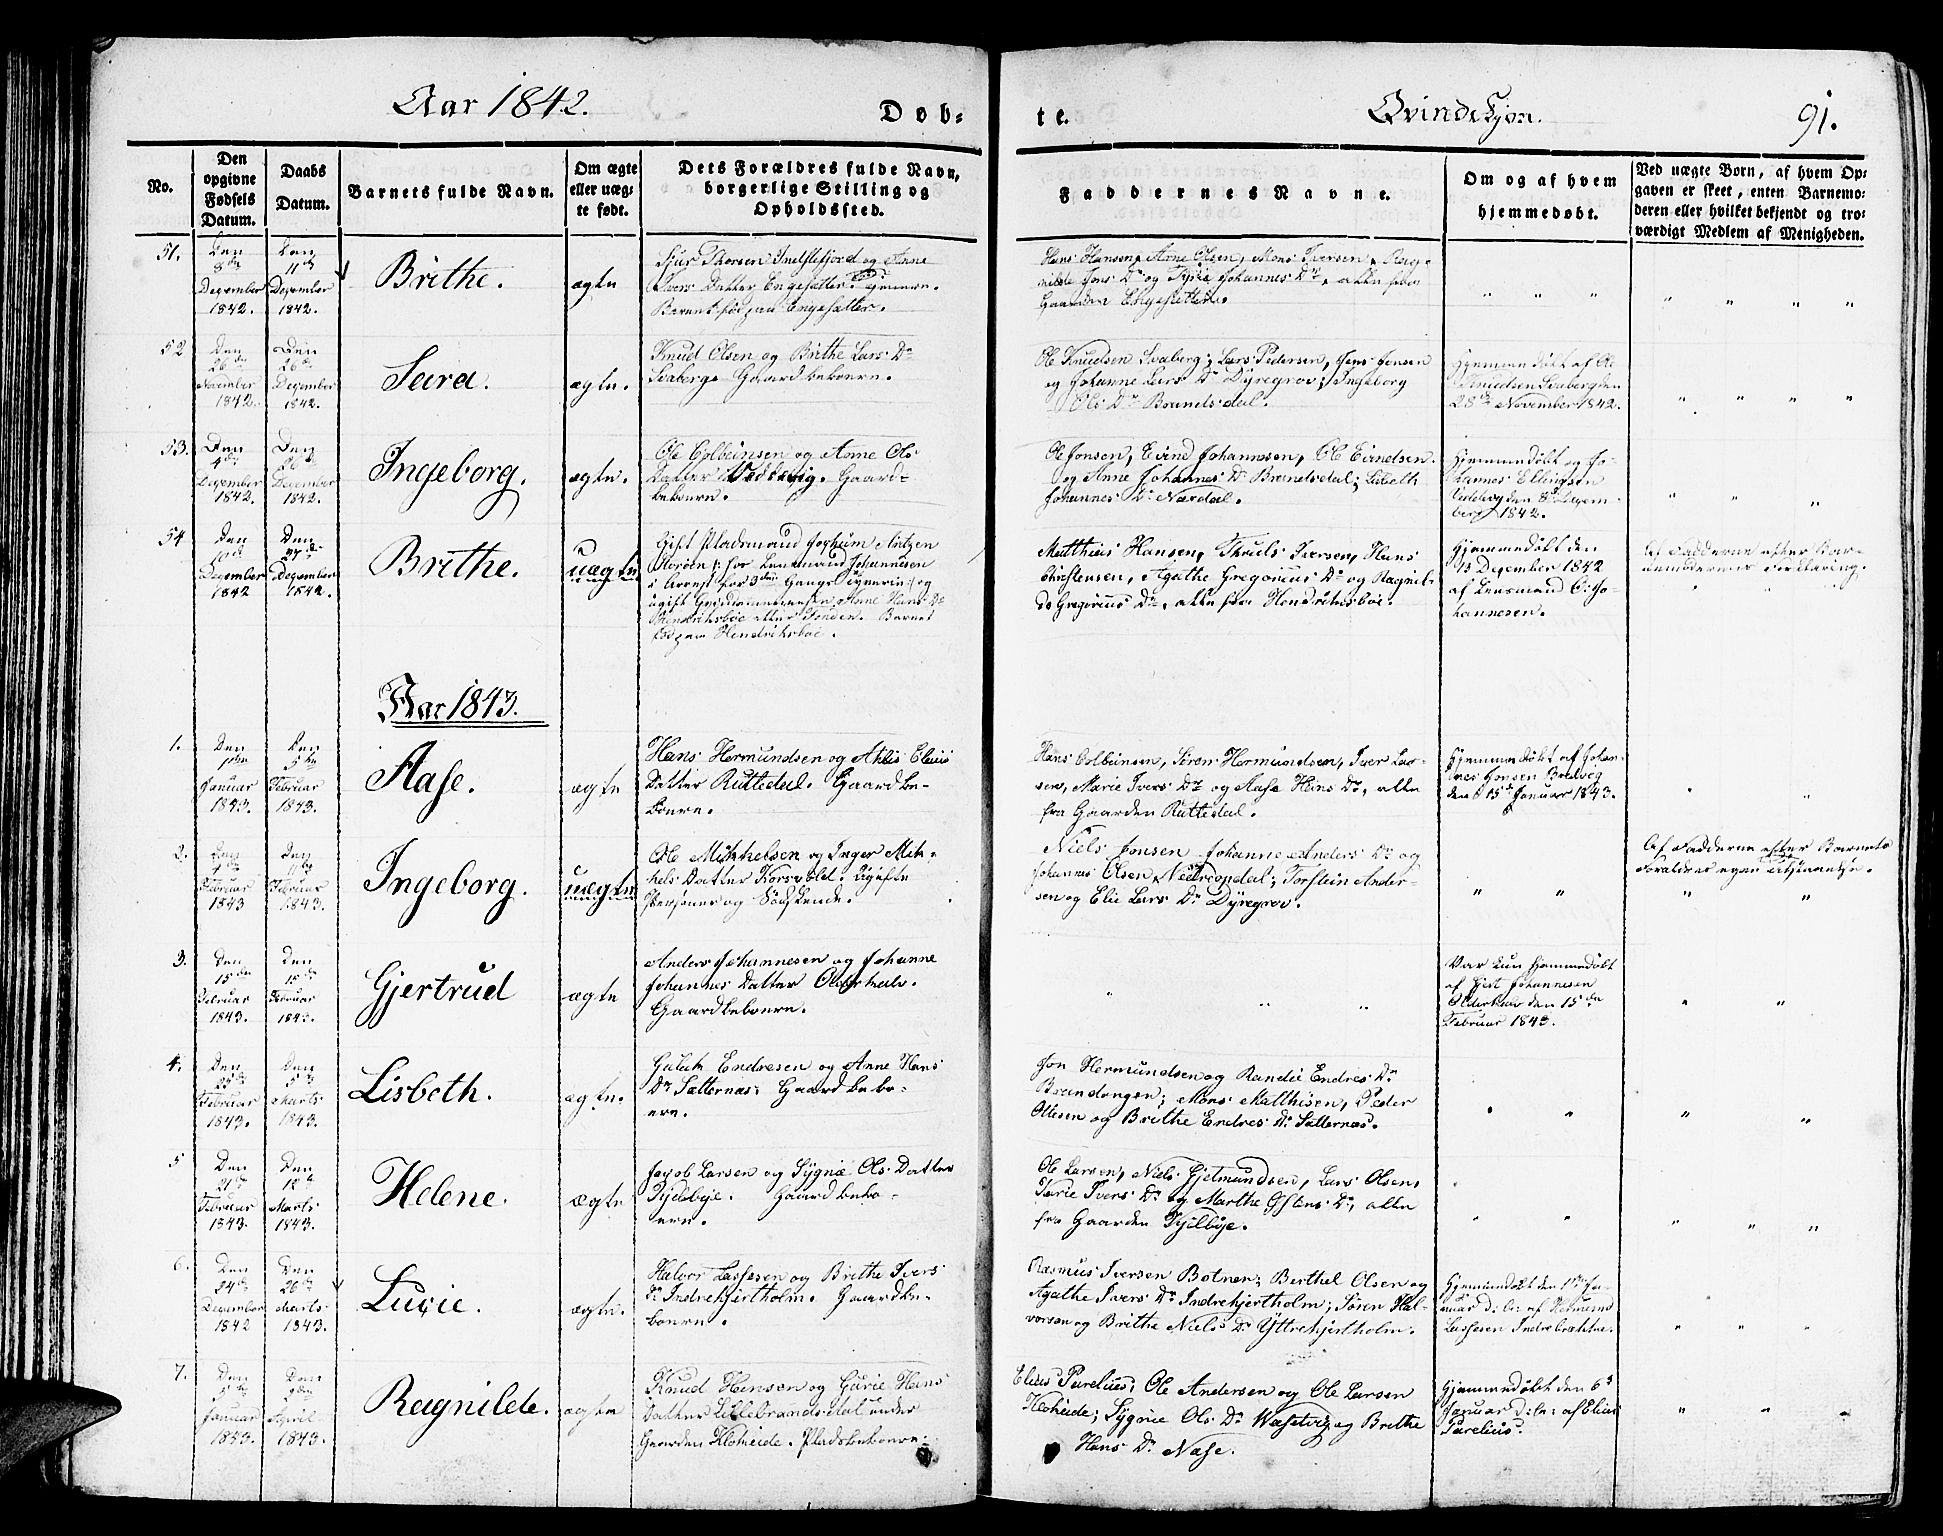 Aar 1842.
Døb=
te.
Qvindekjøn.
91.
No.
Den
opgivne
Fødsels
Datum.
Daabs
Datum.
Barnets fulde Navn.
Om ægte
eller uæg=
te født.
Dets Forældres fulde Navn,
borgerlige Stilling og
Opholdssted.
Faddernes Navne.
Om og af hvem
hjemmedøbt.
Ved uægte Børn, af hvem Op=
gaven er skeet, enten Barnemo=
deren eller hvilket bekjendt og tro=
værdigt Medlem af Menigheden.
51.
Den
8de
December
1842.
Den
11te
December
1842.
Brithe.
ægte
Sjur Thorsen Indstefjord og Anne
Ivers Datter Engesætter.
Barnet fød paa Engesætter.
Hans Hansen, Arne Olsen, Mons Iversen, Rag-
nilde Jons Dr og Johannes Dr, alle fra
Gaarden Engesetter.
52
Den
26de
November
1842.
Den
26de
December
1842.
Sara.
ægte.
Knud Olsen og Brithe Lars Dr
Svaberg Gaardbeboere.
Ole Knudsen Svaberg; Lars Pedersen, Jens Jonsen
og Johanne Lars Dr Dyregrov; Ingeborg
Ols Dr Brandsdal.
Hjemmedøbt af Ole
Knudsen Svaberg den
28de November 1842.
53.
Den
4de
December
1842.
Den
26de
December
1842.
Ingeborg.
ægte.
Ole Colbeinsen og Anne Ols
Datter Vedvig. Gaard=
beboere.
Ole Jonsen, Eivind Johannesen, Ole Eivindsen
og Anne Johannes Dr Brandsdal; Lisbeth
Johannes Dr Nordal.
Hjemmedøbt af Jo-
hannes Ellingsen
den 8de Decem-
ber 1842.
54
Den
December
1842
Den
27de
December
1842.
Brithe.
uægte
Gift Pladsmand Jochum Antzen
for Lensmand Johannesen
Hendriksbøe
fød paa Hendriksbøe.
Matthias Hansen, Thruls Iversen, Hans
Christensen, Agathe Gregorius Dr og Ragnil-
de Gregorius Dr, alle fra Hendriksbøe.
Hjemmedøbt den
13 December 1842
af Lensmand C. Jo-
hannesen.
Af Fadderne efter Bar-
nemoderens Forklaring.
Aar 1843.
1.
Den
Januar
1843.
Den
5te
Februar
1843.
Aase.
ægte
Hans Hermundsen og Athis Elius
Datter Ruttedal. Gaardbe-
boere.
Hans Colbeinsen, Søren Hermundsen, Iver Lar-
sen, Marie Ivers Dr og Aase Hans Dr, alle
fra Gaarden Ruttedal.
Hjemmedøbt af Johan-
nes Jonsen Bredvig
den 15de Januar 1843.
2.
Den
Februar
1843
Den
Februar
1843.
Ingeborg.
uægte
Ole Mikkelsen og Inger Mik-
kels Datter Korsvold. Ugifte
Personer og Sødskende.
Niels Jonsen Johanne Anders Dr og
Johannes Olsen Nedredal; Torstein Ander-
sen og Elie Lars Dr Dyregrov.
Af Fadderne efter Barnets
Forældres egen Tilstaaelse.
3.
Den
15de
Februar
1843.
Den
15de
Februar
1843.
Gjertrud
ægte
Anders Johannesen og Johanne
Johannes Datter Olderhals.
Gaardbeboere.
Var kun hjemmedøbt
af Johannesen
Olderhals den 15de
Februar 1843.
4.
Den
25de
Februar
1843.
Den
5te
Marts
1843.
Lisbeth.
ægte.
Gulak Endresen og Anne Hans
Dr Satternæs. Gaardbebo-
ere.
Jon Hermundsen og Randie Endres Dr
Brandangen; Mons Matthisen, Peder
Olesen og Brithe Endres Dr Satternæs.
5
Den
21de
Februar
1843.
Den
12te
Marts
1843.
Helene.
ægte
Jacob Larsen og Sygnie Ols Datter
Tjelbye. Gaardbebo-
ere.
Ole Larsen, Niels Gjetmundsen, Lars Olsen,
Karie Ivers Dr og Marthe Ostens Dr, alle
fra Gaarden Tjelbye.
6.
Den
24de
December
1842
Den
26de
Marts
1843.
Lucie.
ægte.
Halvor Lassesen og Brithe Ivers
Dr Indrehjertholm. Gaardbe-
boere.
Rasmus Iversen Botnen; Berthel Olsen og
Agathe Ivers Dr Indrehjertholm; Søren Hal-
vorsen og Brithe Niels Dr Yttrehjertholm.
Hjemmedøbt den 1ste Ja-
nuar d: A: af
Lassesen Indrebrække.
7.
Den
5te
Januar
1843.
Den
9de
April
1843.
Ragnilde.
ægte
Knud Hansen og Gurie Hans
Datter Lillebrandsdal under
Gaarden Kleheide. Pladsbeboere.
Elius Parelius; Ole Andersen og Ole Larsen
Kleheide; Sygnie Ols Dr Wasetvig og Brithe
Hans Dr Nase.
Hjemmedøbt den 6te
Januar d: A: af Elius
Parelius.